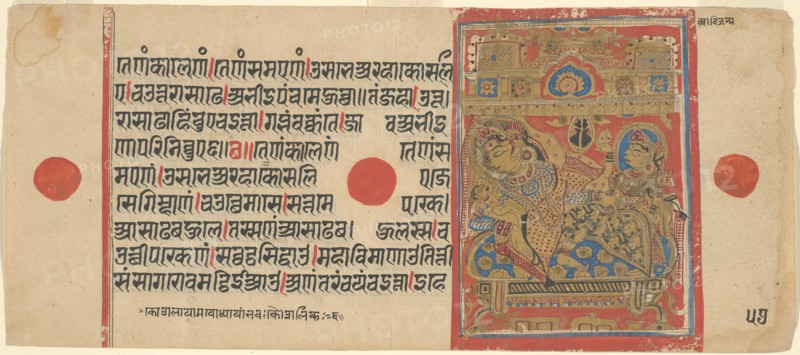 तेणं कालेणं।तेणं समएणं।उसभे अरहा कोसलि
ए।चउउत्तरासाढे।अभीइपंचमे हुत्था॥तं जहा।उत्त
रासाढाहिं चुए चइत्ता।गब्भं वक्कंते।जा व अभीइ
णा परिनिव्वुए॥ ॥तेणं कालेणं तेणं स
मएणं।उसभे अरहा कोसलि ए।जे
से गिम्हाणं।चउत्थे मासे।सत्तमे पक्खे।
आसाढबहुले।तस्सणं आसाढब। हुलस्स।च
उत्थीपक्खेणं।सव्वट्ठसिद्धाउ।महाविमाणाउ तित्ती
सं सागरोवमट्ठिईआउ।अणंतरं चयं चइत्ता।इहे
कोशलायामयोध्यायां भवः कौशलिकः ६
आदिजन्म